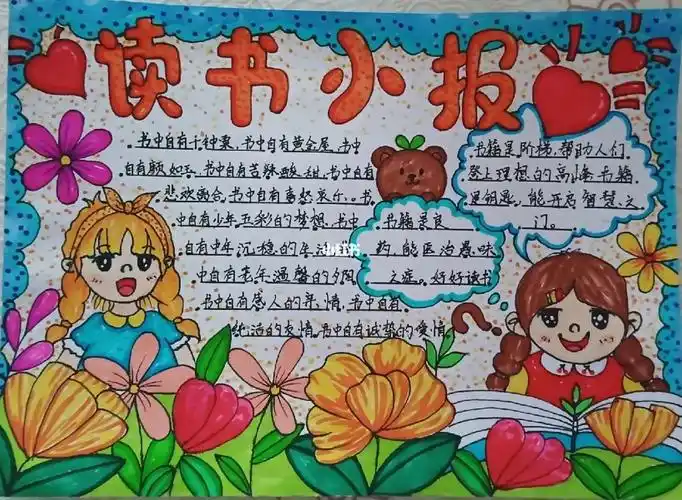 读书小报
书中自有千钟粟,书中自有黄金屋,书中
自有颜如玉,书中自有苦辣酸甜,书中自有
悲欢离合,书中自有喜怒哀乐。书
中自有少年五彩的梦想,书中
自有中年沉稳的生活
中自有老年温馨的夕阳
书中自有感人的亲情,书中自有
纯洁的友情,书中自有诚挚的爱情
书籍是良
药,能医治愚昧
之症。好好读书
书籍是阶梯,帮助人们
登上理想的高峰书籍
是钥匙,能开启智慧之
门。
小红书